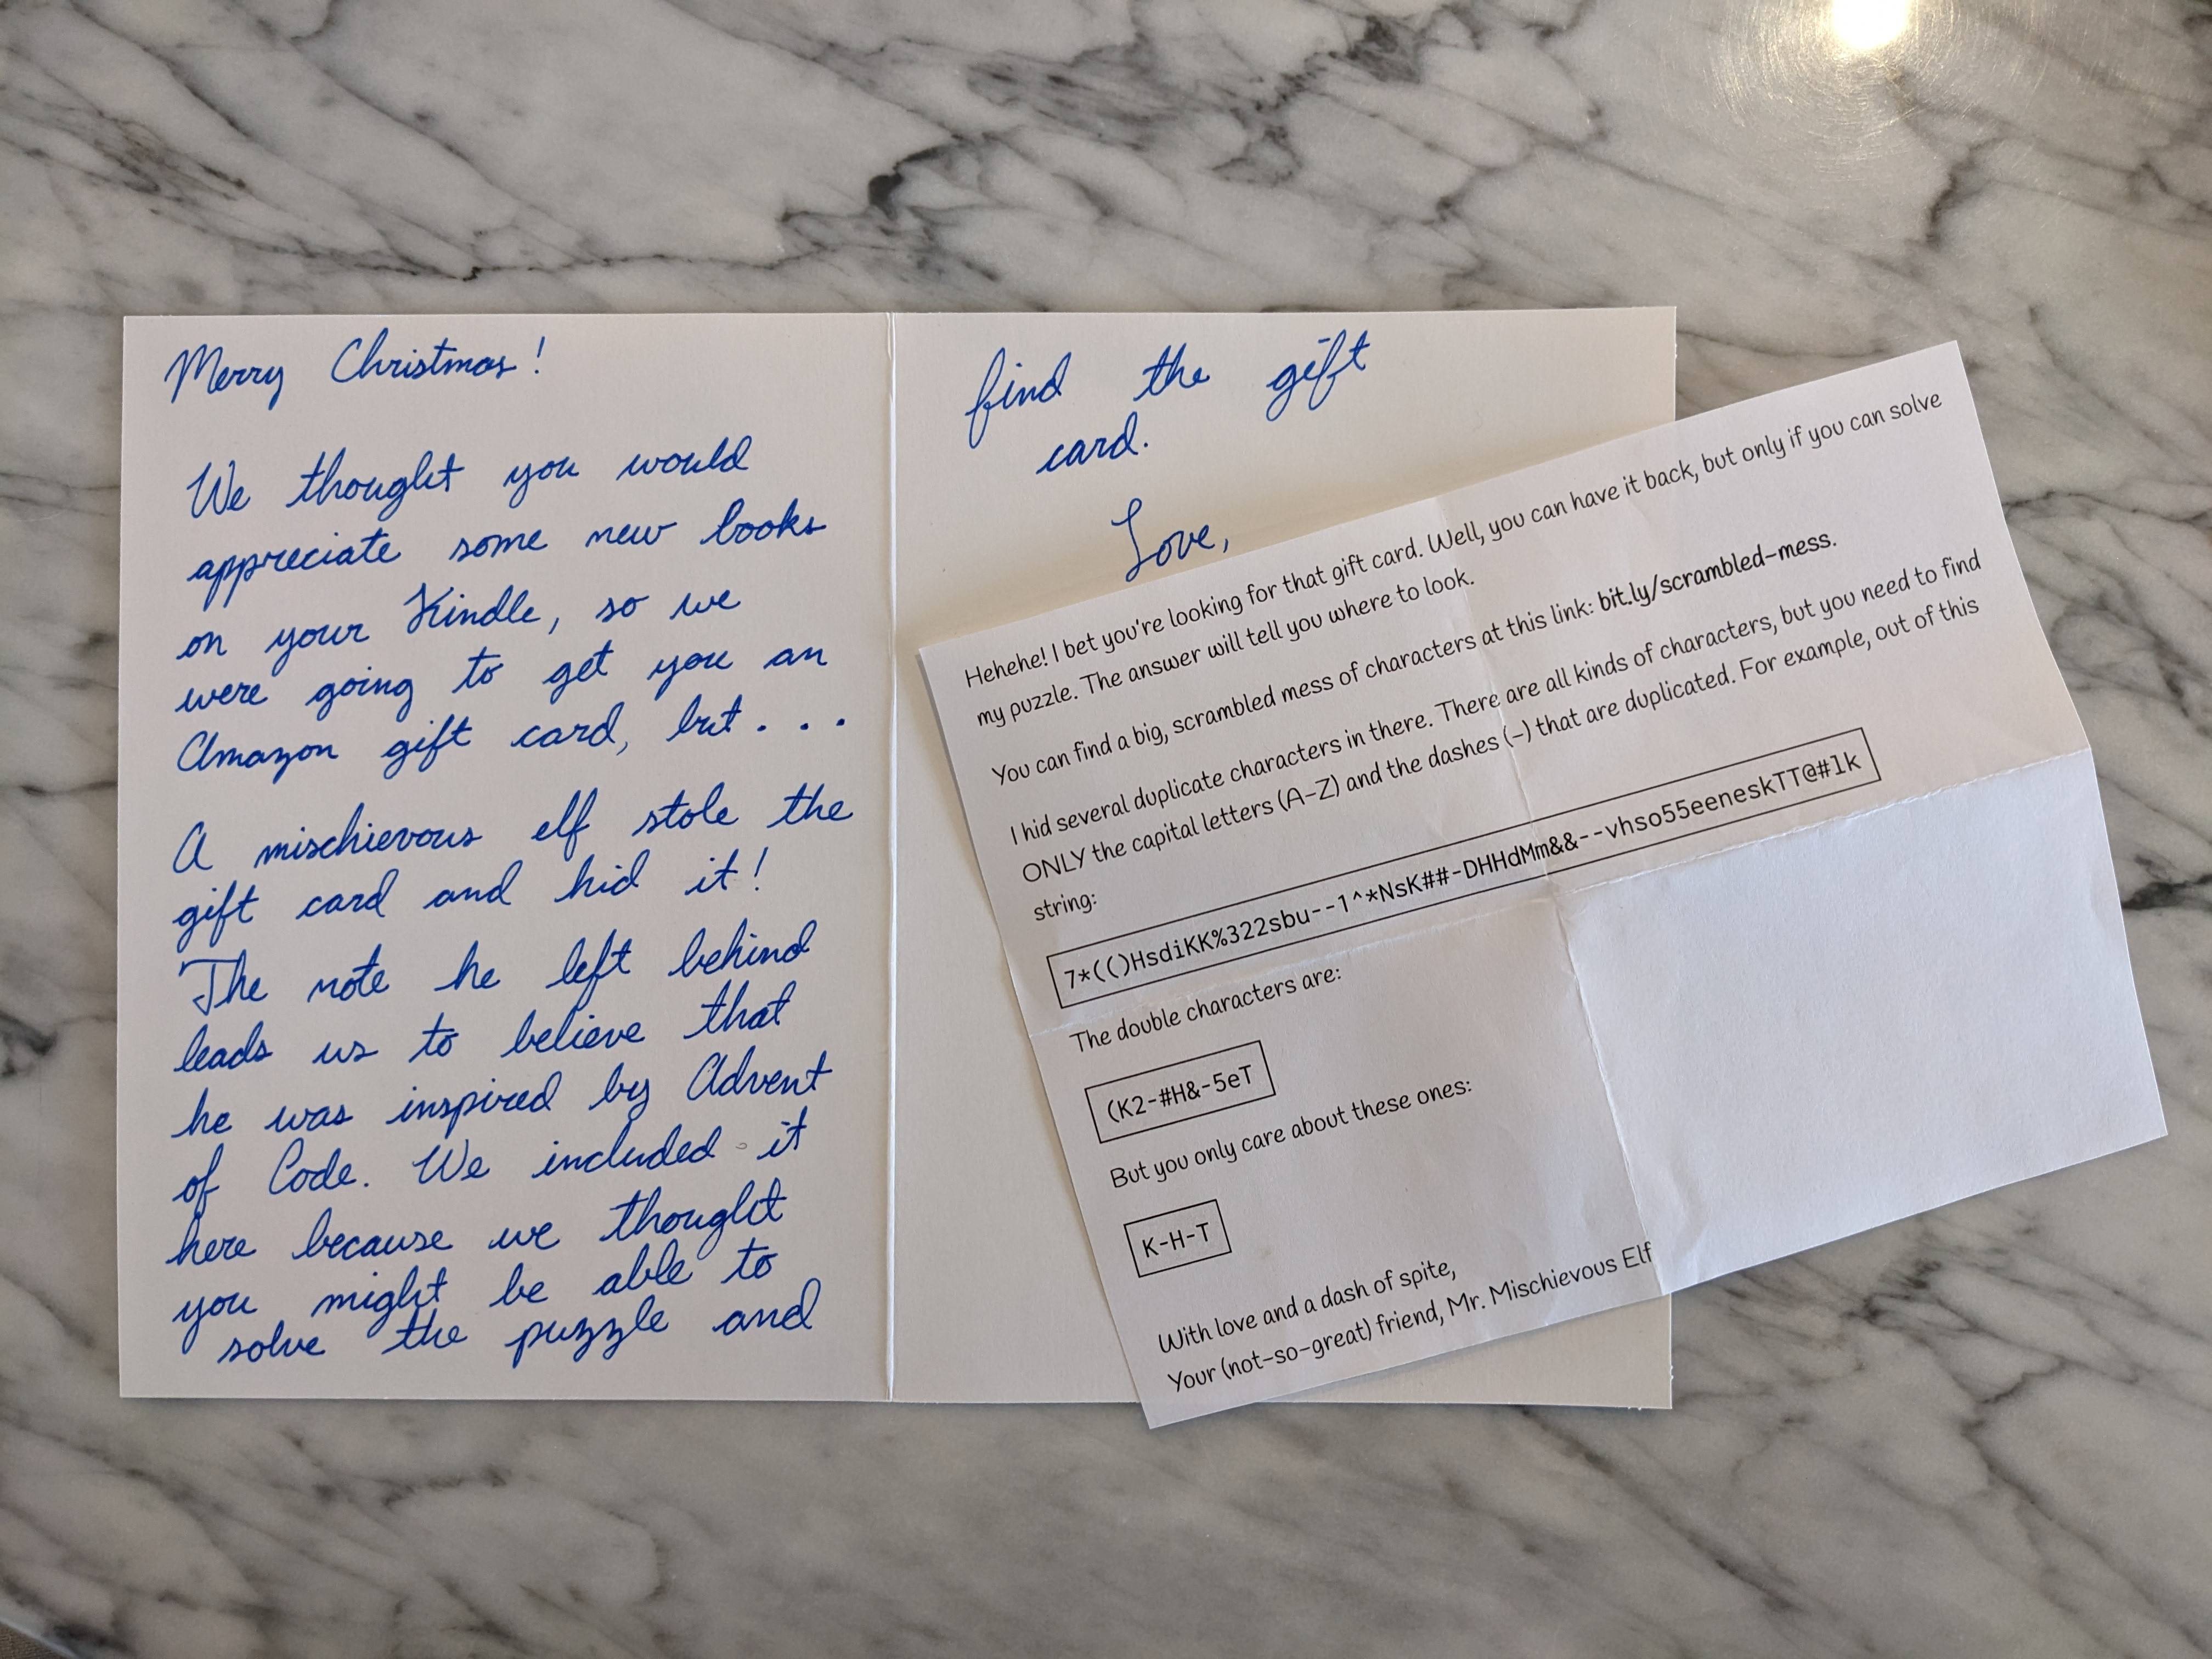 Merry Christmas!
We thought you would
appreciate some new books
on your Kindle, so we
were going to get you an
Amazon gift card, but...
A mischievous elf stole the
gift card and hid it!
The note he left behind
leads us to believe that
he was inspired by Advent
of Code. We included it
here because we thought
you might be able to
solve the puzzle and
find the gift
card.
Love,
Hehehe! I bet you're looking for that gift card. Well, you can have it back, but only if you can solve
my puzzle. The answer will tell you where to look.
You can find a big, scrambled mess of characters at this link: bit.ly/scrambled-mess.
I hid several duplicate characters in there. There are all kinds of characters, but you need to find
ONLY the capital letters (A-Z) and the dashes (-) that are duplicated. For example, out of this
string:
7*(()HsdiKK%322sbu--1^*NsK##-DHHdMm&&--vhso55eeneskTT@#1k
The double characters are:
(K2-#H&-5eT
But you only care about these ones:
K-H-T
With love and a dash of spite,
Your (not-so-great) friend, Mr. Mischievous Elf